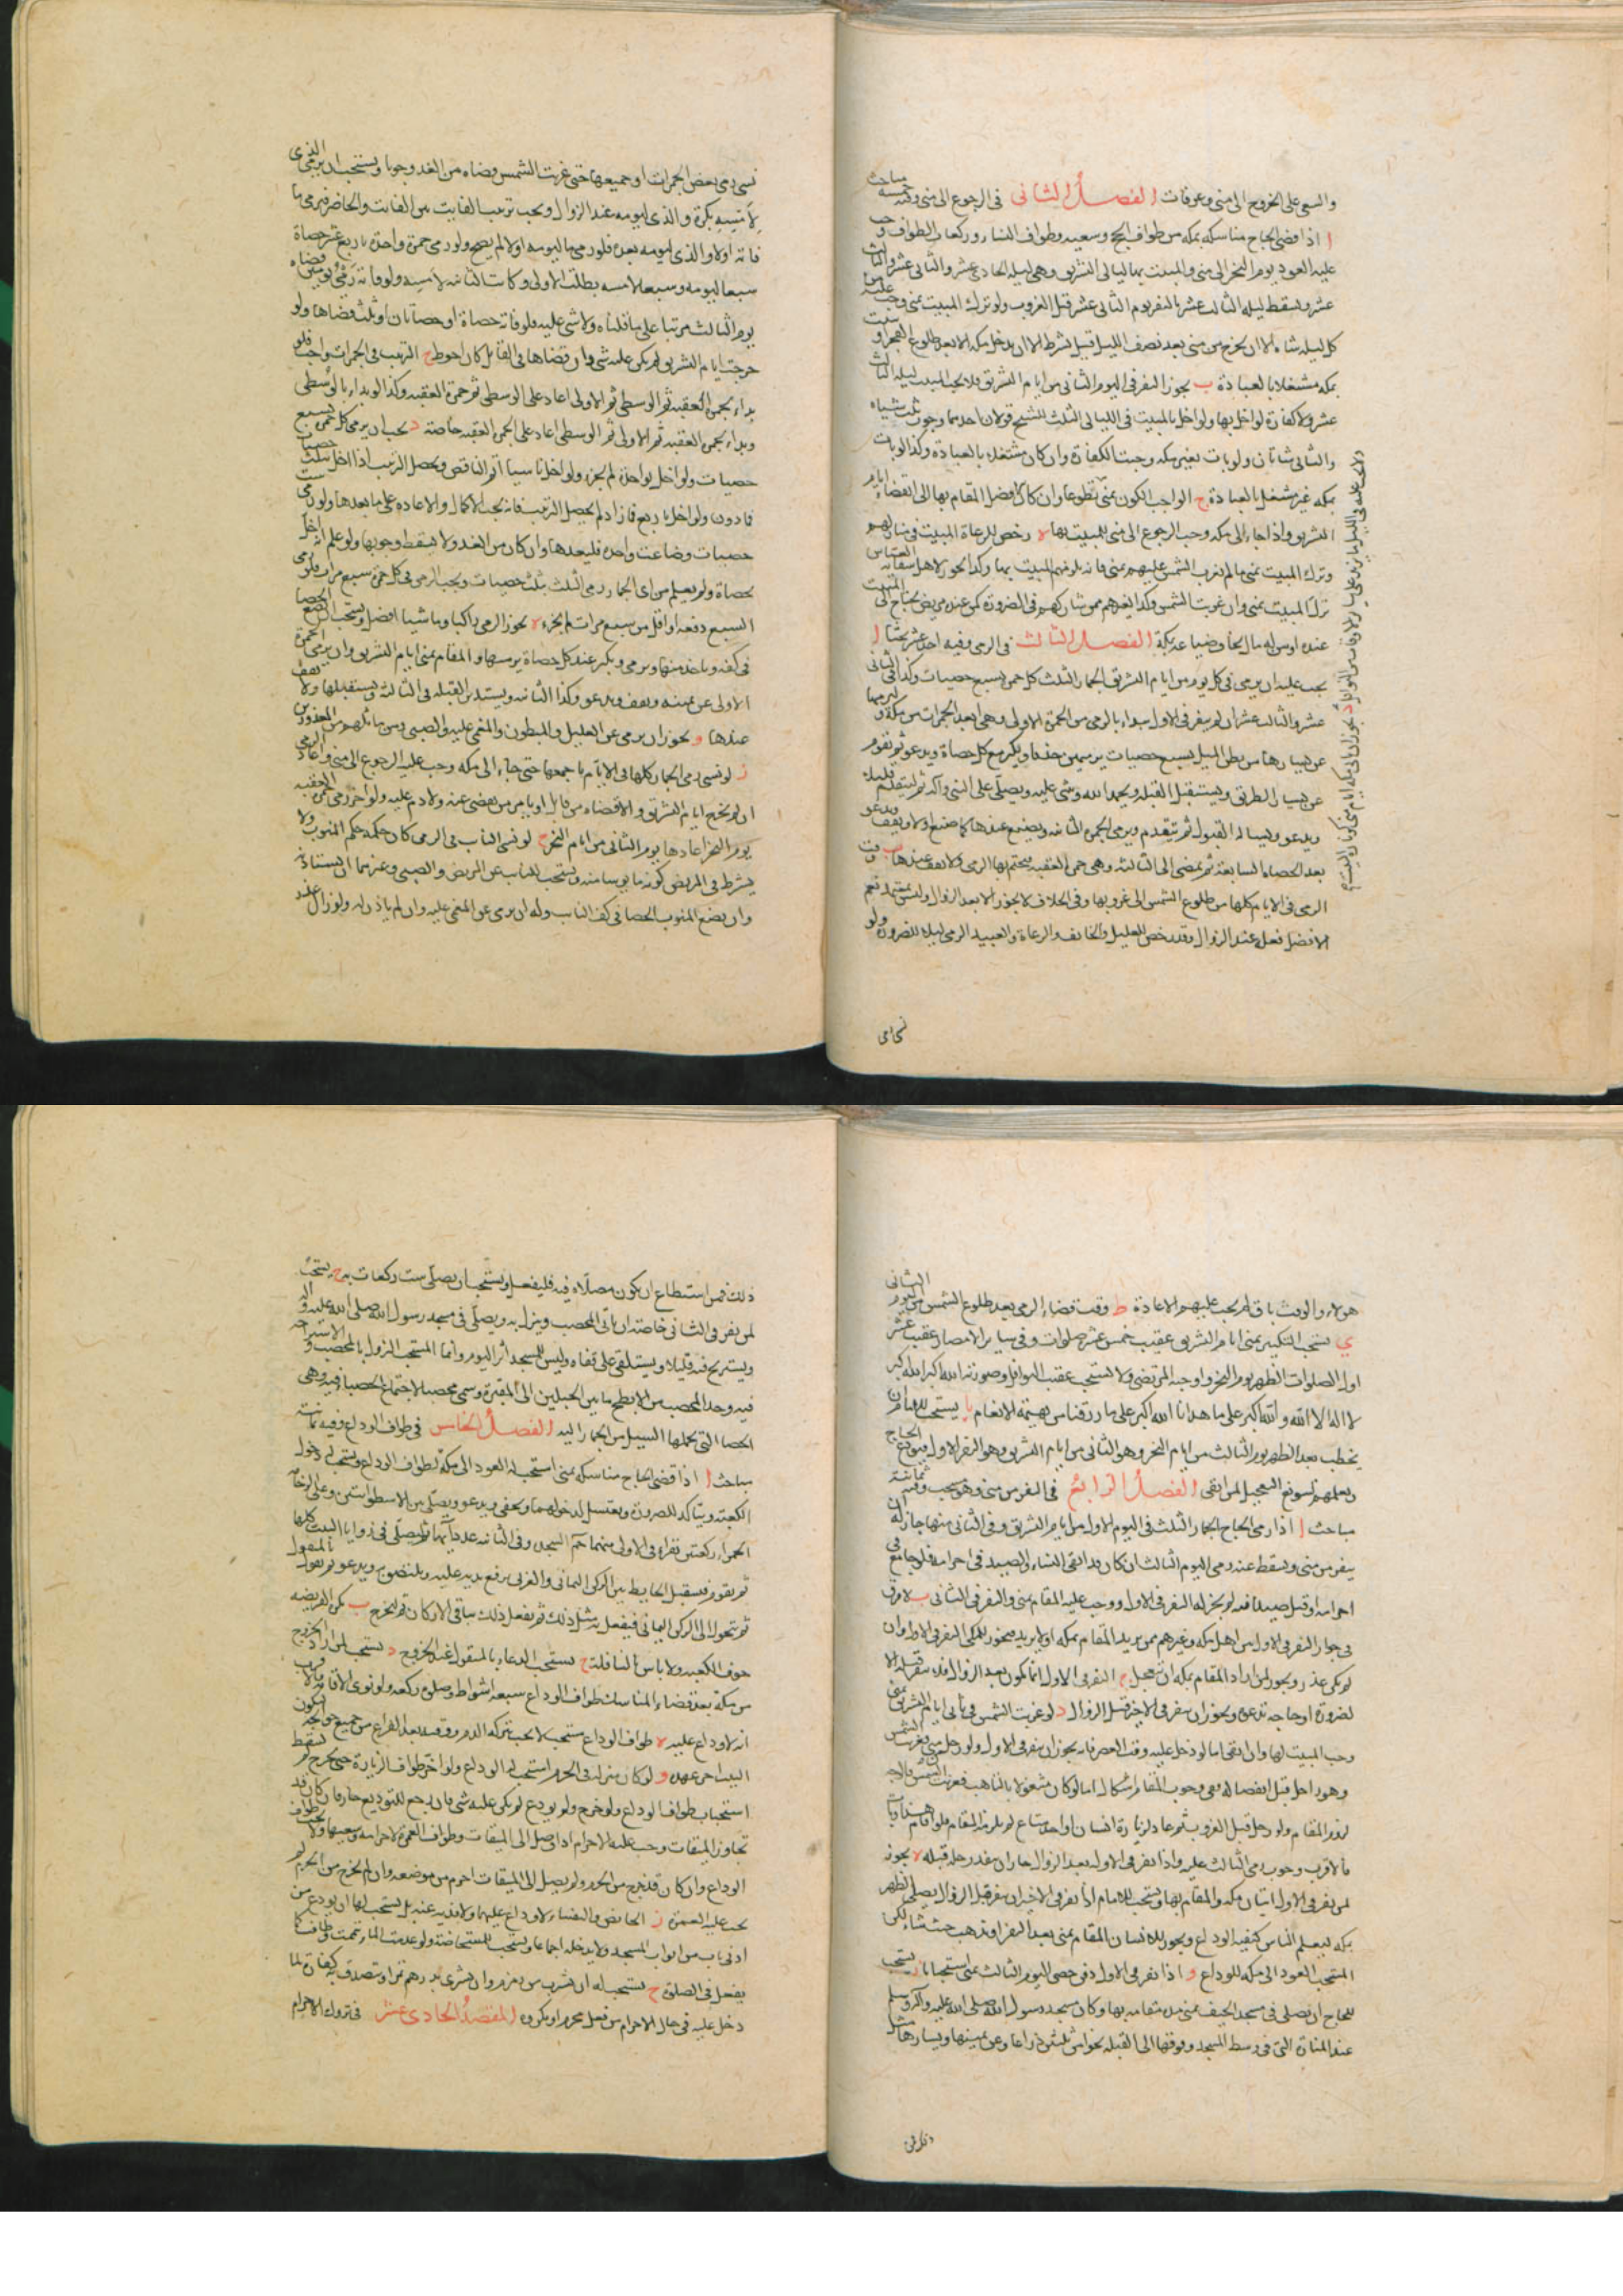 والسعى على الخروج الى منى وعرفات الفصل الثانى فى الرجوع الى منى وفيه خمسة مباحث
ا اذا قضى الحاج مناسكه بمكه من طواف الحج وسعيه وطواف النساء وركعات الطواف وجب
عليه العود يوم النحر الى منى والمبيت بها ليالى التشريق وهى ليله الحادى عشر والثانى عشر والثالث
عشر ويسقط ليله الثالث عشر بالنفر يوم الثانى عشر قبل الغروب ولو ترك المبيت بمنى وجب عليه
كل ليله شاة الا ان يخرج من منى بعد نصف الليل قيل بشرط الا ان يدخل مكه الا بعد طلوع الفجر او
بمكه مشتغلا بالعبادة ب يجوز النفر فى اليوم الثانى من ايام التشريق فلا يجب المبيت ليله الثالث
عشر ولا كفارة لو اخل بها ولو اخل بالمبيت فى الليالى الثلث للشيخ قولان احدهما وجوب ثلث شياه
والثانى شاتان ولو بات بغير مكه وجبت الكفارة وان كان مشتغلا بالعبادة وكذا لو بات
بمكه غير مشتغل بالعبادة ج الواجب الكون بمنى تطوعا وان كان الافضل المقام بها الى انقضاء ايام
التشريق واذا جاء الى مكه وجب الرجوع الى منى للمبيت بها ه رخص للرعاة المبيت فى منازلهم
وترك المبيت بمنى ما لم تغرب الشمس عليهم بمنى فانه يلزمهم المبيت بها وكذا يجوز لاهل سقاية العباس
ترك المبيت بمنى وان غربت الشمس وكذا لغيرهم ممن شاركهم فى الضرورة كمن عنده مريض يحتاج الى المبيت
عنده او من له مال يخاف ضياعه بمكة الفصل الثالث فى الرمى وفيه احد عشر بحثا ا
يجب عليه ان يرمى فى كل يوم من ايام التشريق الجمار الثلث كل جمرة بسبع حصيات وكذا فى الثانى
عشر والثالث عشر ان لم ينفر فى الاول يبداء بالرمى من الجمرة الاولى وهى ابعد الجمرات من مكة و ليرميها
عن يسارها من بطن المسيل بسبع حصيات يرميهن حذفا ويكبر مع كل حصاة ويدعو ثم يقوم
عن يسار الطريق ويستقبل القبله ويحمد الله ويثنى عليه ويصلى على النبى وآله ثم ليتقدم قليلا
ويدعو ويساله القبول ثم يتقدم ويرمى الجمرة الثانيه ويصنع عندها كما صنع اولا ويقف ويدعو
بعد الحصاة السابعة ثم يمضى الى الثالثه وهى جمرة العقبه يختم بها الرمى ولا يقف عندها ب وقت
الرمى فى الايام كلها من طلوع الشمس الى غروبها وفى الخلاف لا يجوز الا بعد الزوال وليس بمعتمد نعم
الافضل فعله عند الزوال وقد رخص للعليل والخائف والرعاة والعبيد الرمى ليلا للضرورة ولو
نسى رمى بعض الجمرات او جميعها حتى غربت الشمس قضاه من الغد وجوبا ويستحب ان يرمى الذى
لامسه بكرة والذى ليومه عند الزوال ويجب ترتيب الفايت على الفايت والحاضر فيرمى ما
فاته اولا والذى ليومه بعده فلو رمى ما ليومه اولا لم يصح ولو رمى جمرة واحدة باربع عشر حصاة
سبعا ليومه وسبعا لامسه بطلت الاولى وكانت الثانيه لامسه ولو فاته رمى يومين قضاه
يوم الثالث مرتبا على ما قلناه ولا شى عليه ولو فاته حصاة او حصاتان او ثلث قضاها ولو
خرجت ايام التشريق لم يكن عليه شى وان قضاها فى القابل كان احوط ج الترتيب فى الجمرات واجب فلو
بداء بجمرة العقبه ثم الوسطى ثم الاولى اعاد على الوسطى ثم جمرة العقبه وكذا لو بداء بالوسطى
وبداء بجمرة العقبه ثم الاولى ثم الوسطى اعاد على الجمرة العقبه خاصة د يجب ان يرمى كل جمرة بسبع
حصيات ولو اخل بواحدة لم يجز ولو اخل ناسيا اتم الناقص ويحصل الترتيب اذا اخل بثلث حصيات
فما دون ولو اخل باربع فما زاد لم يحصل الترتيب فانه يجب الاكمال والاعادة على ما بعدها ولو رمى ست
حصيات وضاعت واحدة فليعدها وان كان من الغد ولا يسقط وجوبها ولو علم انه اخل
بحصاة ولم يعلم من اى الجمار رمى الثلث بثلث حصيات ويجب الرمى فى كل جمرة سبع مرات فلو رمى
السبع دفعه او اقل من سبع مرات لم يجزء ه يجوز الرمى راكبا وماشيا افضل ويستحب ان يضع الحصا
فى كفه وياخذ منها ويرمى ويكبر عند كل حصاة يرميها والمقام بمنى ايام التشريق وان يرمى الجمرة
الاولى عن يمينه ويقف ويدعو وكذا الثانيه ويستدبر القبله فى الثالثه ويستقبلها ولا يقف
عندها و يجوز ان يرمى عن العليل والمبطون والمغمى عليه والصبى ومن ماثلهم من المعذورين
ز لو نسى رمى الجمار كلها فى الايام باجمعها حتى جاء الى مكه وجب عليه الرجوع الى منى واعادة الرمى
ان لم يخرج ايام التشريق والا قضاه من قابل او يامر من يقضى عنه ولا دم عليه ولو اخر رمى جمرة العقبه
يوم النحر اعادها يوم الثانى من ايام النحر ح لو نسى النايب فى الرمى كان حكمه حكم المنوب ولا
يشترط فى المريض كونه مايوسا منه ويستحب للنايب عن المريض والصبى وغيرهما ان يستاذنه
وان يضع المنوب الحصا فى كف النايب وله ان يرمى عن المغمى عليه وان لم ياذن له ولو زال عذر
هولاء والوقت باق لم يجب عليهم الاعادة ط وقت قضاء الرمى بعد طلوع الشمس من اليوم الثانى
ى يستحب التكبير بمنى ايام التشريق عقيب خمس عشر صلوات وفى ساير الامصار عقيب عشر
اول الصلوات الظهر يوم النحر واوجبه المرتضى ولا يستحب عقيب النوافل وصورته الله اكبر الله اكبر
لا اله الا الله والله اكبر على ما هدانا الله اكبر على ما رزقنا من بهيمة الانعام يا يستحب للامام ان
يخطب بعد الظهر يوم الثالث من ايام النحر وهو الثانى من ايام التشريق وهو النفر الاول فيودع الحاج
ويعلمهم تسويغ التعجيل لمن اتقى الفصل الرابع فى النفر من منى وهو مستحب وفيه ثمانية
مباحث ا اذا رمى الحاج الجمار الثلث فى اليوم الاول من ايام التشريق وفى الثانى منها جاز له ان
ينفر من منى ويسقط عنه رمى اليوم الثالث ان كان قد اتقى النساء والصيد فى احرامه فلو جامع فى
احرامه او قتل صيدا فيه لم يجز له النفر فى الاول ووجب عليه المقام بمنى والنفر فى الثانى ب لا فرق
فى جواز النفر فى الاول بين اهل مكه وغيرهم ممن يريد المقام بمكه او لا يريد فيجوز للمكى النفر فى الاول وان
لم يكن عذر ويجوز لمن اراد المقام بمكه ان يتعجل ج النفر فى الاول انما يكون بعد الزوال فلا ينفر قبله الا
لضرورة او حاجه تدعوه ويجوز ان ينفر فى الاخير قبل الزوال د لو غربت الشمس فى ثانى ايام التشريق بمنى
وجب المبيت بها وان اتقى اما لو دخل عليه وقت العصر فانه يجوز ان ينفر فى الاول ولو رحل من منى فغربت الشمس
وهو داخل قبل انفصاله ففى وجوب المقام اشكال اما لو كان مشغولا بالتاهب فغربت الشمس فالوجه
لزوم المقام ولو رحل قبل الغروب ثم عاد لزيارة انسان او اخذ متاع لم يلزمه المقام فلو اقام هنا وبات
فالاقرب وجوب رمى الثالث عليه واذا نفر فى الاول بعد الزوال جاز ان ينفذ رحله قبله ه يجوز
لمن نفر فى الاول اتيان مكه والمقام بها ويستحب للامام اذا نفر فى الاخير ان ينفر قبل الزوال يصلى الظهر
بمكه ليعلم الناس كيفيه الوداع ويجوز للانسان المقام بمنى بعد النفر او يذهب حيث شاء لكن
المستحب العود الى مكه للوداع و اذا نفر فى الاول دفن حصى اليوم الثالث بمنى استحبابا ز يستحب
للحاج ان يصلى فى مسجد الخيف بمنى مدة مقامه بها وكان مسجد رسول الله صلى الله عليه وآله وسلم
عند المنارة التى فى وسط المسجد وفوقها الى القبله نحوا من ثلثين ذراعا وعن يمينها ويسارها مثل
ذلك فمن استطاع ان يكون مصلاه فيه فليفعل ويستحب ان يصلى ست ركعات به ح يستحب
لمن نفر فى الثانى خاصة ان ياتى المحصب وينزل به ويصلى فى مسجد رسول الله صلى الله عليه وآله
ويستريح فيه قليلا ويستلقى على قفاه وليس للمسجد اثر اليوم وانما المستحب النزول بالمحصب والاستراحه
فيه وحد المحصب من الابطح ما بين الجبلين الى المقبرة وسمى محصبا لاجتماع الحصباء فيه وهى
الحصا التى يحملها السيل من الجمار اليه الفصل الخامس فى طواف الوداع وفيه ثمانية
مباحث ا اذا قضى الحاج مناسكه بمنى استحب له العود الى مكة لطواف الوداع ويستحب له دخول
الكعبه ويتاكد للصرورة ويغتسل لدخولها ويحفى ويدعو ويصلى بين الاسطوانتين وعلى الرخامة
الحمراء ركعتين يقراء فى الاولى منهما حم السجدة وفى الثانيه عدد آيها ثم ليصلى فى زوايا البيت كلها
ثم يقوم فيستقبل الحايط بين الركن اليمانى والغربى يرفع يديه عليه ويلتصق به ويدعو ثم يقول المنقول
ثم يتحول الى الركن اليمانى فيفعل به مثل ذلك ثم يفعل ذلك بباقى الاركان ثم ليخرج ب يكره الفريضه
جوف الكعبه ولا باس بالنافلة ج يستحب الدعاء بالمنقول عند الخروج د يستحب لمن اراد الخروج
من مكة بعد قضاء المناسك طواف الوداع سبعه اشواط وصلوة ركعته ولو نوى الاقامة فالاقرب
انه لا وداع عليه ه طواف الوداع مستحب لا يجب بتركه الدم ووقته بعد الفراغ من جميع حوائجه ليكون
البيت اخر عهده و لو كان منزله فى الحرم استحب له الوداع ولو اخر طواف الزيارة حتى يخرج لم يسقط
استحباب طواف الوداع ولو خرج ولم يودع لم يكن عليه شى فان رجع للتوديع جاز فان كان قد
تجاوز الميقات وجب عليه الاحرام اذا وصل الى الميقات وطواف العمرة لاحرامه وسعيها ولا يجب طواف
الوداع وان كان قد خرج من الحرم ولم يصل الى الميقات احرم من موضعه وان لم يخرج من الحرم لم
يجب عليه العمرة ز الحايض والنفساء لا وداع عليهما ولا فديه عنه بل يستحب لها ان يودع من
ادنى باب من ابواب المسجد ولا يدخله اجماعا ويستحب للمستحاضة ولو عدمت الماء تيممت وطافت كما
يفعل فى الصلوة ح يستحب له ان يشرب من زمزم وان يشترى بدرهم تمرا ويتصدق به كفارة لما
دخل عليه فى حال الاحرام من فعل محرم او مكروه المقصد الحادى عشر فى تروك الاحرام